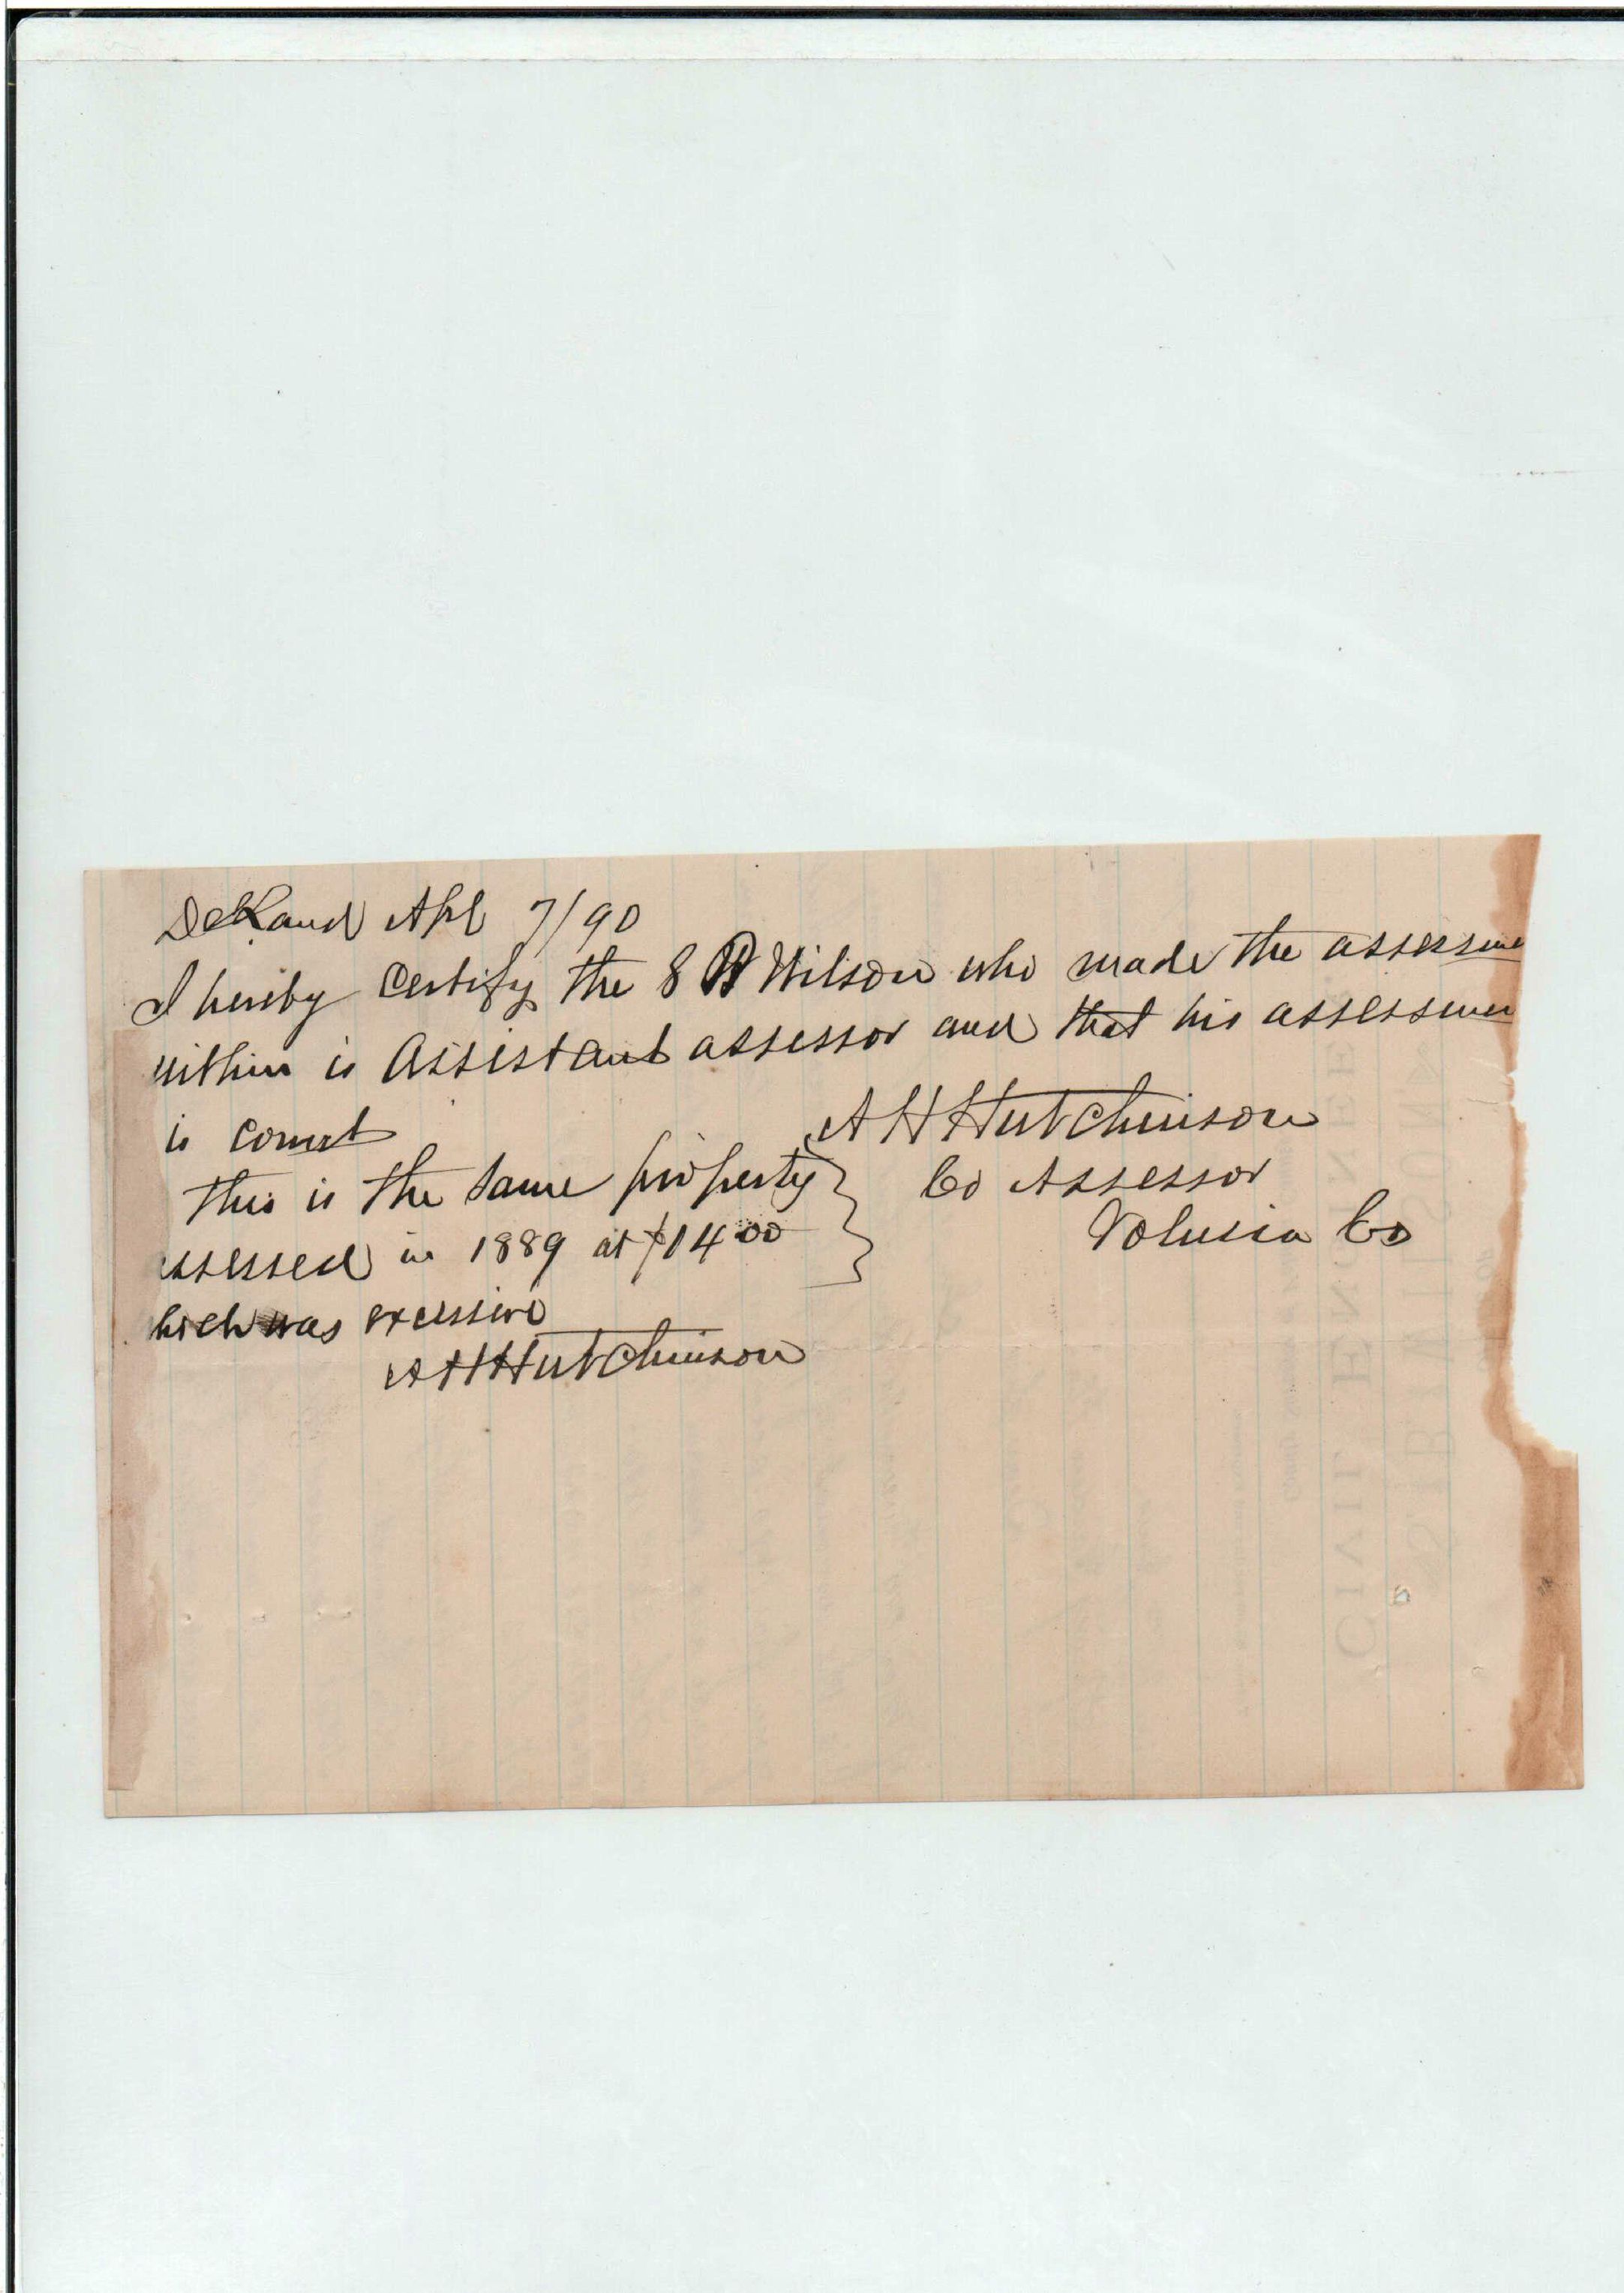 DeLand Apl 7/90
I hereby certify the S B Wilson who made the assessme
within is Assistant assessor and that his assessmen
is correct
A H Hutchinson
Co Assessor
Volusia Co
This is the same property
assessed in 1889 at $1400
hich was excessive
A H Hutchinson
CIVIL ENGINEER